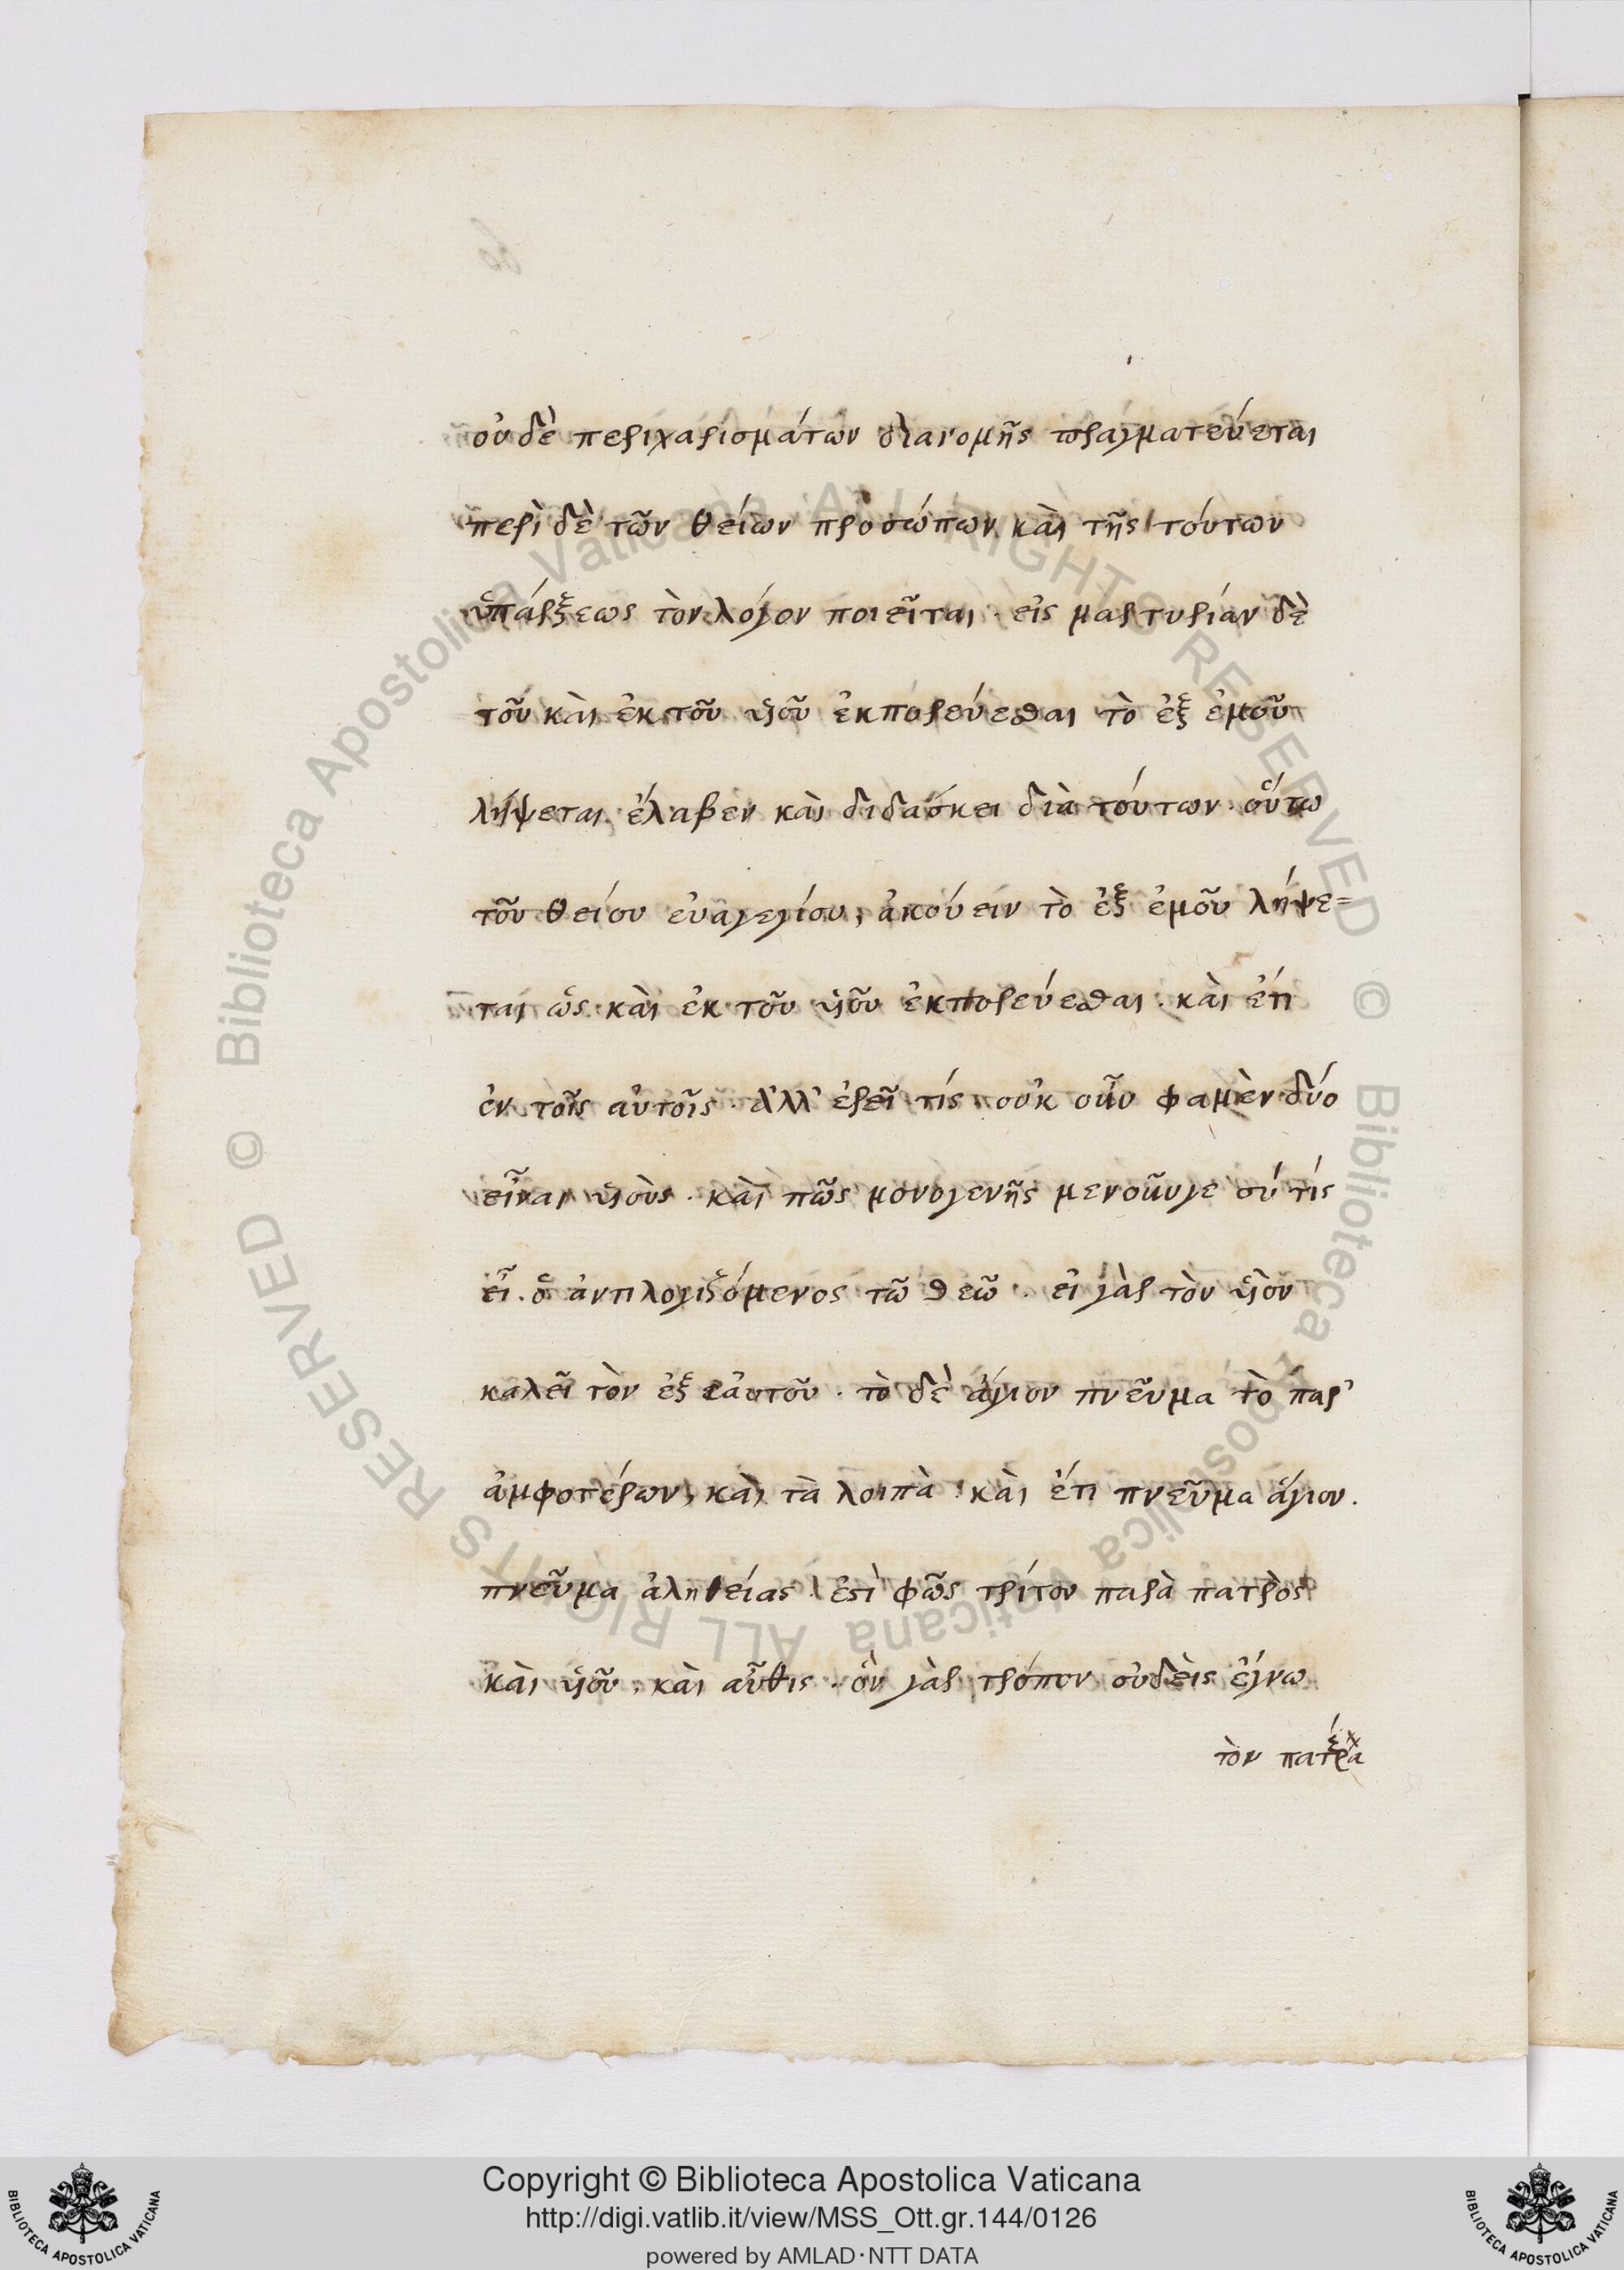 οὐδὲ περιχαρισμάτων διανομῆς πραγματεύεται
περὶ δὲ τῶν θείων προσώπων καὶ τῆς τούτων
ὑπάρξεως τὸν λόγον ποιεῖται · εἰς μαρτυρίαν δὲ
τοῦ καὶ ἐκ τοῦ υἱοῦ ἐκπορεύεσθαι τὸ ἐξ ἐμοῦ
λήψεται. ἔλαβεν καὶ διδάσκει διὰ τούτων · οὕτω
τοῦ θείου εὐαγγελίου, ἀκούειν τὸ ἐξ ἐμοῦ λήψε=
ται ὡς καὶ ἐκ τοῦ υἱοῦ ἐκπορεύεσθαι · καὶ ἔτι
ἐν τοῖς αὐτοῖς · ἀλλ' ἐρεῖ τίς, οὐκ οὖν φαμὲν δύο
εἶναι υἱοὺς · καὶ πῶς μονογενῆς μενοῦνγε σύ τίς
εἶ · ὁ ἀντιλογιζόμενος τῶ θεῶ · εἰ γὰρ τὸν υἱὸν
καλεῖ τὸν ἐξ ἑαυτοῦ · τὸ δὲ ἅγιον πνεῦμα τὸ παρ'
ἀμφοτέρων, καὶ τὰ λοιπὰ · καὶ ἔτι πνεῦμα ἅγιον.
πνεῦμα ἀληθείας · ἐστὶ φῶς τρίτον παρὰ πατρὸς
καὶ υἱοῦ, καὶ αὖθις · ὃν γὰρ τρόπον οὐδεὶς ἔγνω
τὸν πατέρα
Copyright © Biblioteca Apostolica Vaticana
http://digi.vatlib.it/view/MSS_Ott.gr.144/0126
powered by AMLAD·NTT DATA
BIBLIOTECA APOSTOLICA VATICANA
BIBLIOTECA APOSTOLICA VATICANA
© Biblioteca Apostolica Vaticana ALL RIGHTS RESERVED
© Biblioteca Apostolica Vaticana ALL RIGHTS RESERVED